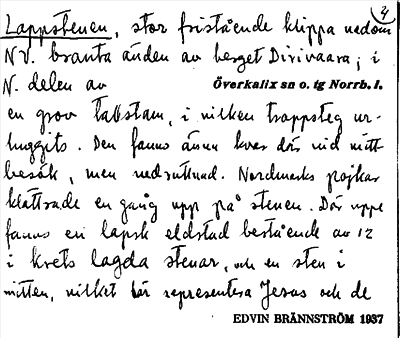 4
Lappstenen, stor fristående klippa nedom
NV. branta änden av berget Dirivaara; i
N. delen av
Överkalix sn o. tg Norrb. l.
en grov tallstam, i vilken trappsteg ur-
huggits. Den fanns ännu kvar där vid mitt
besök, men nedruttnad. Nordmarks pojkar
klättrade en gång upp på stenen. Där uppe
fanns en lapsk eldstad bestående av 12
i krets lagda stenar, och en sten i
mitten, vilket bör representera Jesus och de
EDVIN BRÄNNSTRÖM 1937